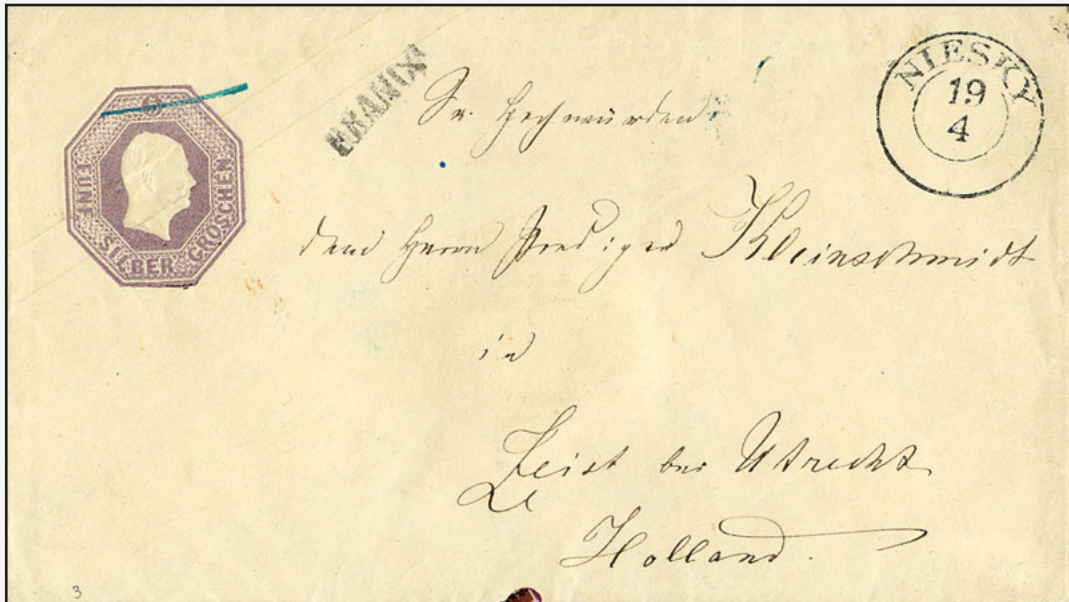 5
FÜNF SILBER GROSCHEN
FRANCO
NIESKY
19
4
Sr. Hochwürden
dem Herrn Prediger Kleinschmidt
in
Zeist bei Utrecht
Holland.
3